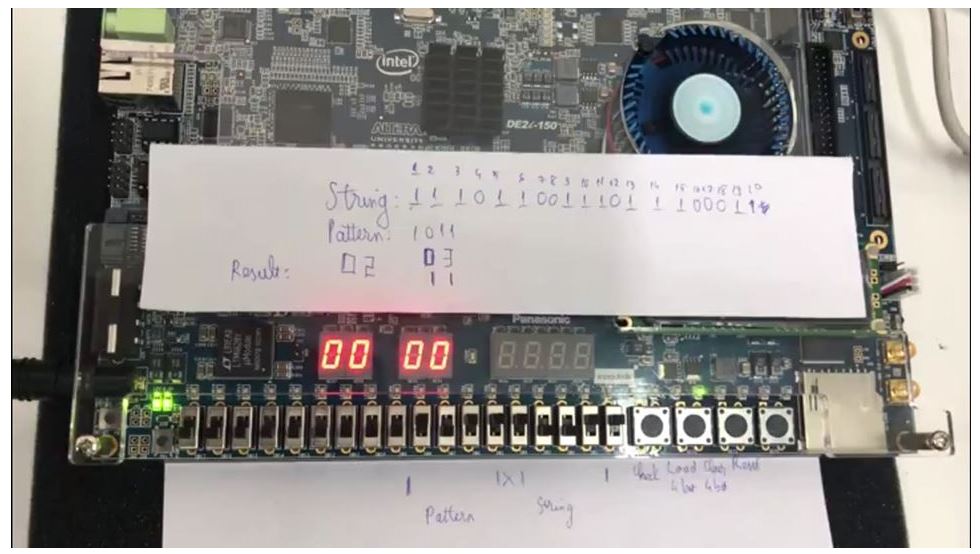 intel
ALTERA
UNIVERSITY
PROGRAM
DE2i-150
1 2 3 4 5 6 7 8 9 10 11 12 13 14 15 16 17 18 19 20
String: 1 1 1 0 1 1 0 0 1 1 1 0 1 1 1 0 0 0 1 1
Pattern: 1011
Result: 02 03
11
Panasonic
00 00
8.8.8.8.
1 1X1 1 Check Load Clear Reset
4 bit 4 bit
Pattern String